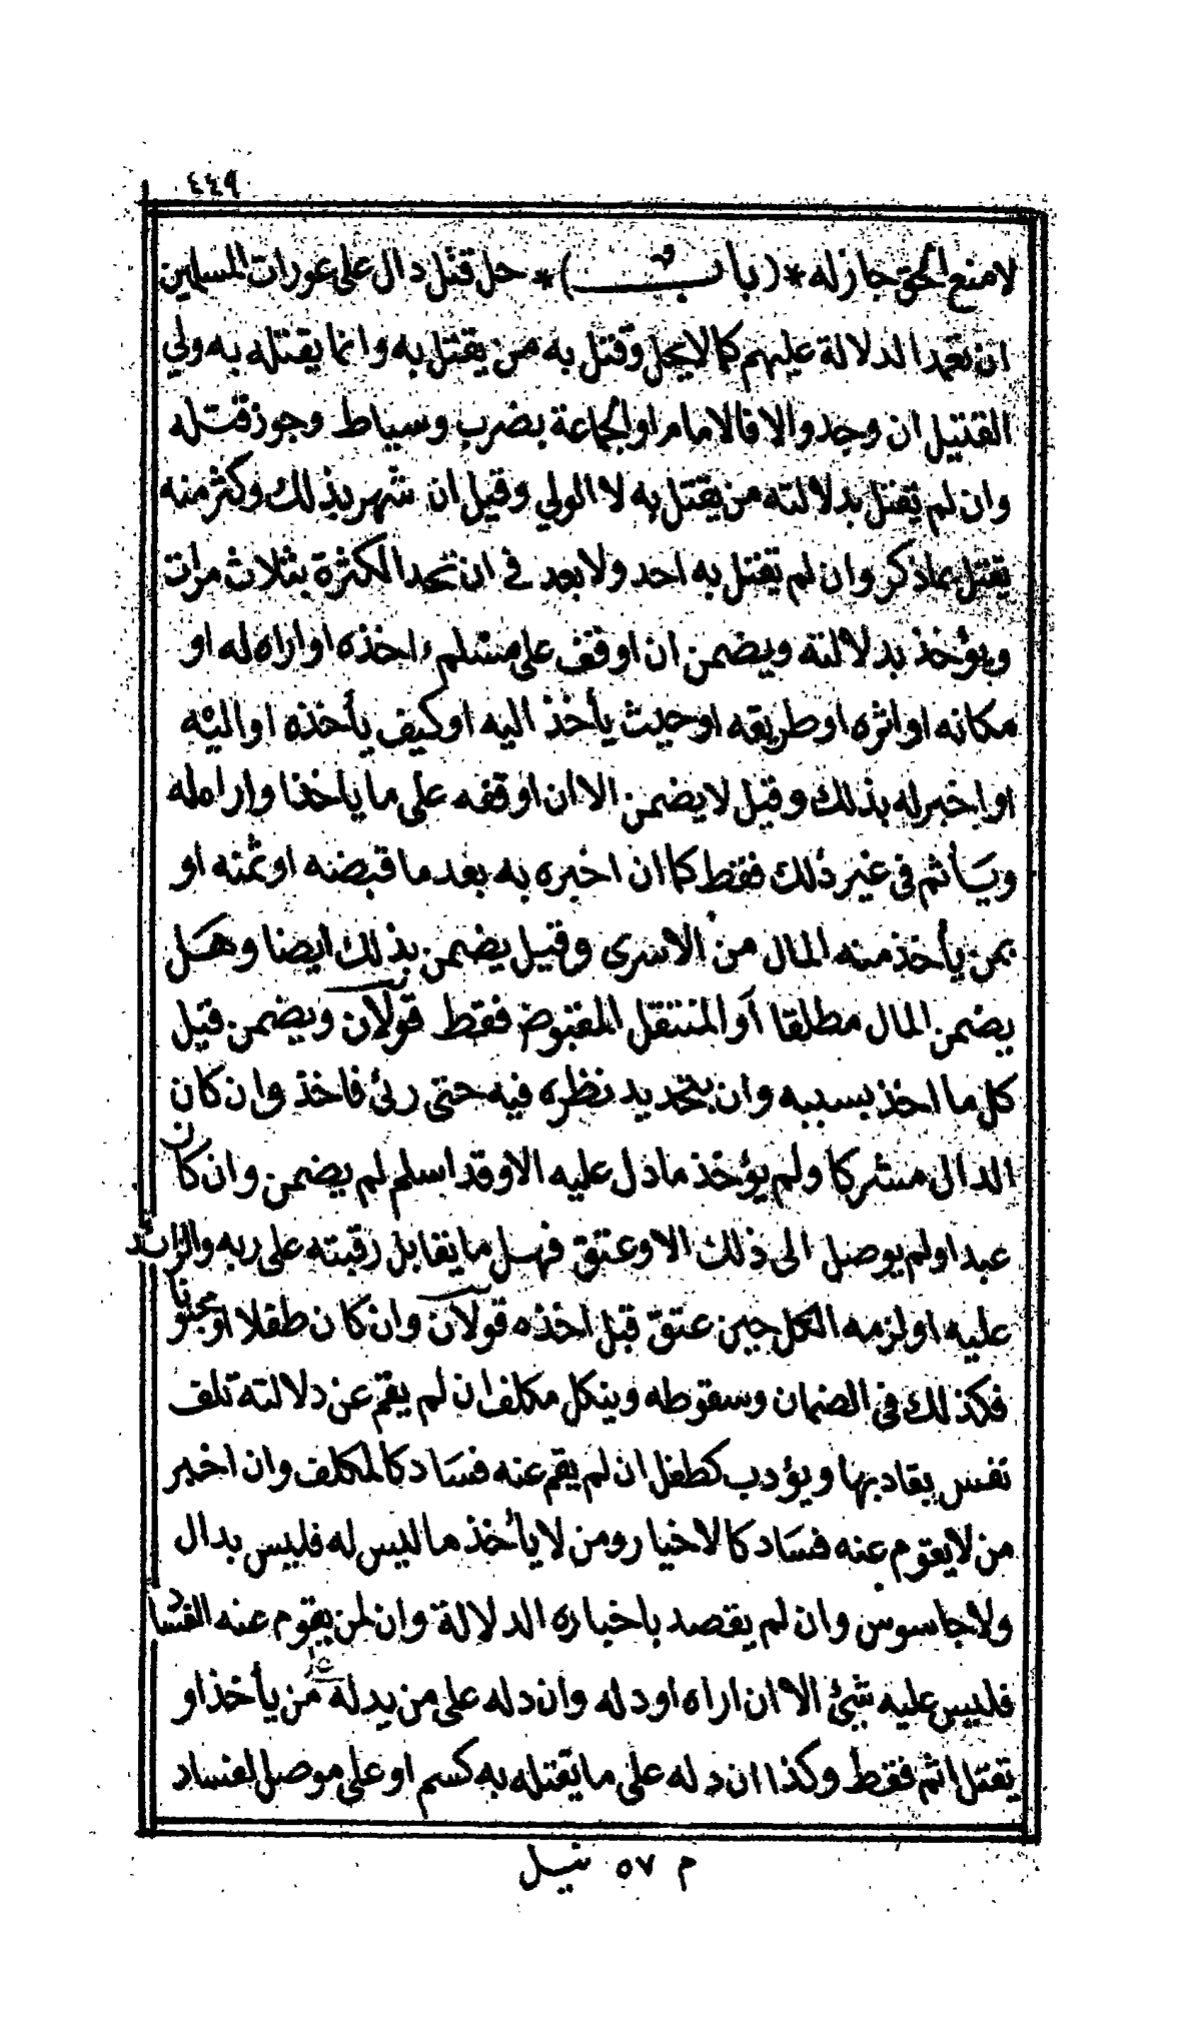 ٤٤٩
لا منع الحق جاز له *(باب)* حل قتل دال على عورات المسلمين
ان تعمد الدلالة عليهم كما لا يحل وقتل به من يقتل به وانما يقتله به ولي
القتيل ان وجد والا فالامام او الجماعة بضرب وسياط وجوز قتله
وان لم يقتل بدلالته من يقتل به لا الولي وقيل ان شهر بذلك وكثر منه
يقتل بما ذكر وان لم يقتل به احد ولا بعد في ان تحد الكثرة بثلاث مرات
ويؤخذ بدلالته ويضمن ان اوقف على مسلم اخذه او اراه له او
مكانه او اثره او طريقه او حيث يأخذ اليه او كيف يأخذه او اليه
او اخبر له بذلك وقيل لا يضمن الا ان اوقفه على ما يأخذ او اراه له
ويأثم في غير ذلك فقط كما ان اخبره به بعد ما قبضه او ثمنه او
بمن يأخذ منه المال من الاسرى وقيل يضمن بذلك ايضا وهل
يضمن المال مطلقا أو المنتقل المقبوض فقط قولان ويضمن قيل
كل ما اخذ بسببه وان بتحديد نظره فيه حتى رئ فاخذ وان كان
الدال مشركا ولم يؤخذ ما دل عليه الا وقد اسلم لم يضمن وان كان
عبدا ولم يوصل الى ذلك الا وعتق فهل ما يقابل رقبته على ربه والزائد
عليه او لزمه الكل حين عتق قبل اخذه قولان وان كان طفلا او مجنونا
فكذلك في الضمان وسقوطه وينكل مكلف ان لم يقم عن دلالته تلف
نفس يقاد بها ويؤدب كطفل ان لم يقم عنه فساد كالمكلف وان اخبر
من لا يقوم عنه فساد كالاخيار ومن لا يأخذ ما ليس له فليس بدال
ولا جاسوس وان لم يقصد باخباره الدلالة وان لمن يقوم عنه الفساد
فليس عليه شئ الا ان اراه او دله وان دله على من يدله من يأخذ او
يقتل اثم فقط وكذا ان دله على ما يقتله به كسم او على موصل لفساد
م ٥٧ نيل